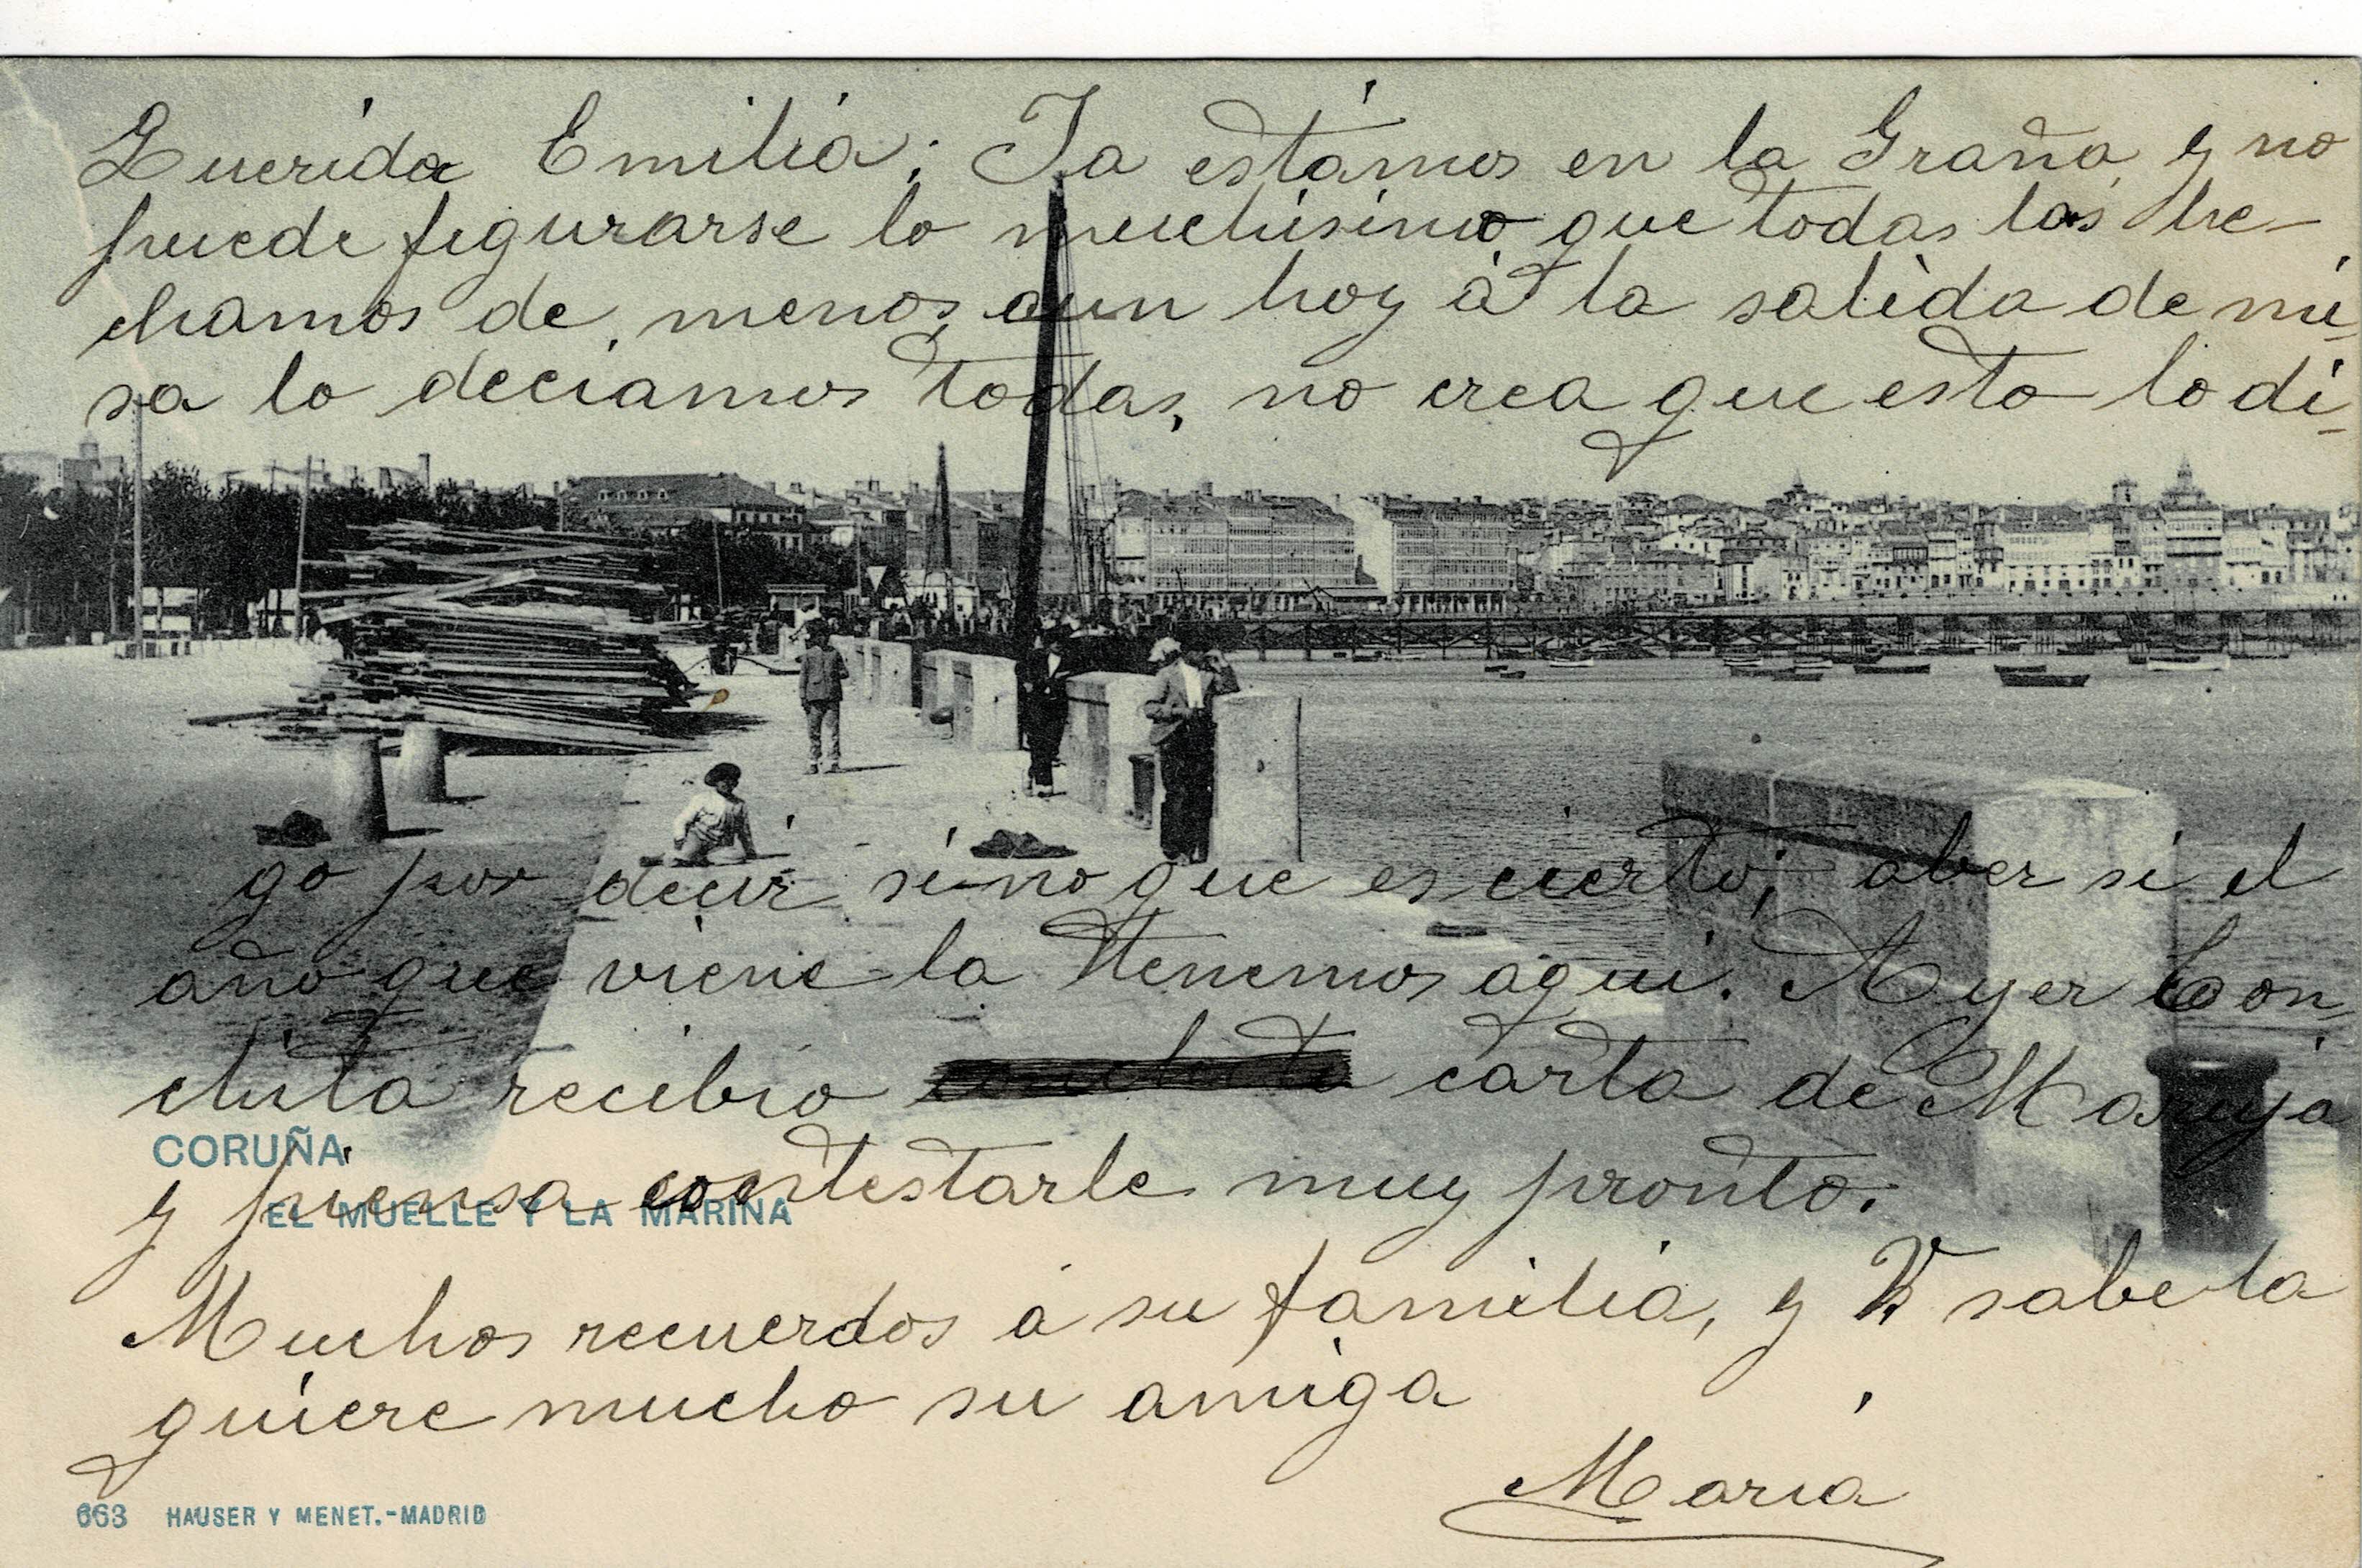 Querida Emilia; Ya estámos en la Graña, y no
puede figurarse lo muchisimo que todas las he-
chamos de menos, aun hoy á la salida de mi-
sa lo deciamos todas, no crea que esto lo di-
go por decir sino que es cierto; aber si el
año que viene la tenemos aqui. Ayer Con-
chita recibio carta de Maruja
CORUÑA
y piensa contestarle muy pronto.
EL MUELLE Y LA MARINA
Muchos recuerdos á su familia, y V sabe la
quiere mucho su amiga
María
663 HAUSER Y MENET.-MADRID